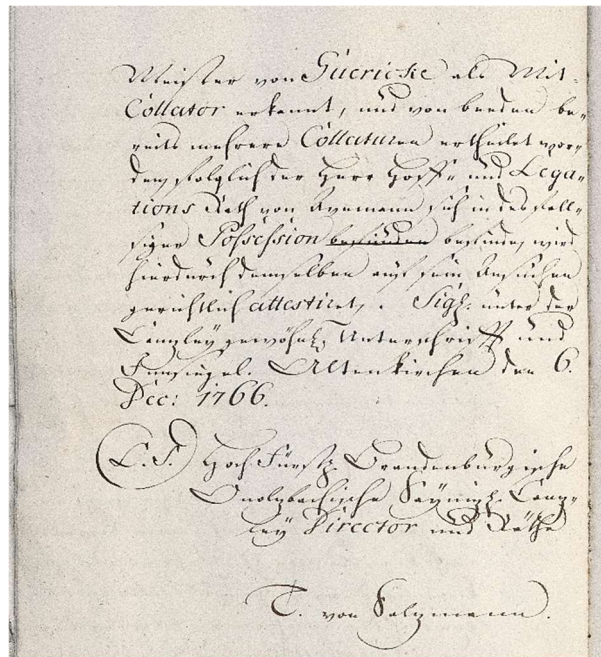 Meister von Guericke als Mit-
Collator erkannt, und von beeden be-
reits mehrere Collaturen ertheilet wor-
den, folglich der Herr Hoff- und Lega-
tions Rath von Avemann sich in desfall-
siger Possession befunden befinde, wird
hierdurch demselben auf sein Ansuchen
gerichtlich attestiret. Sigl. unter der
Canzley gewöhnl. Unterschrifft und
Innsiegel. Altenkirchen den 6.
Dec: 1766.
(L.S.) HochFürstl. Brandenburgische
Onolzbachische Saynisch. Canz-
ley Director und Räthe
T. von Salzmann.